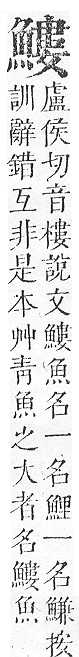 鰻
盧侯切音樓說文鰻魚名一名鯉一名鰜按
訓辭錯互非是本艸靑魚之大者名鰻魚